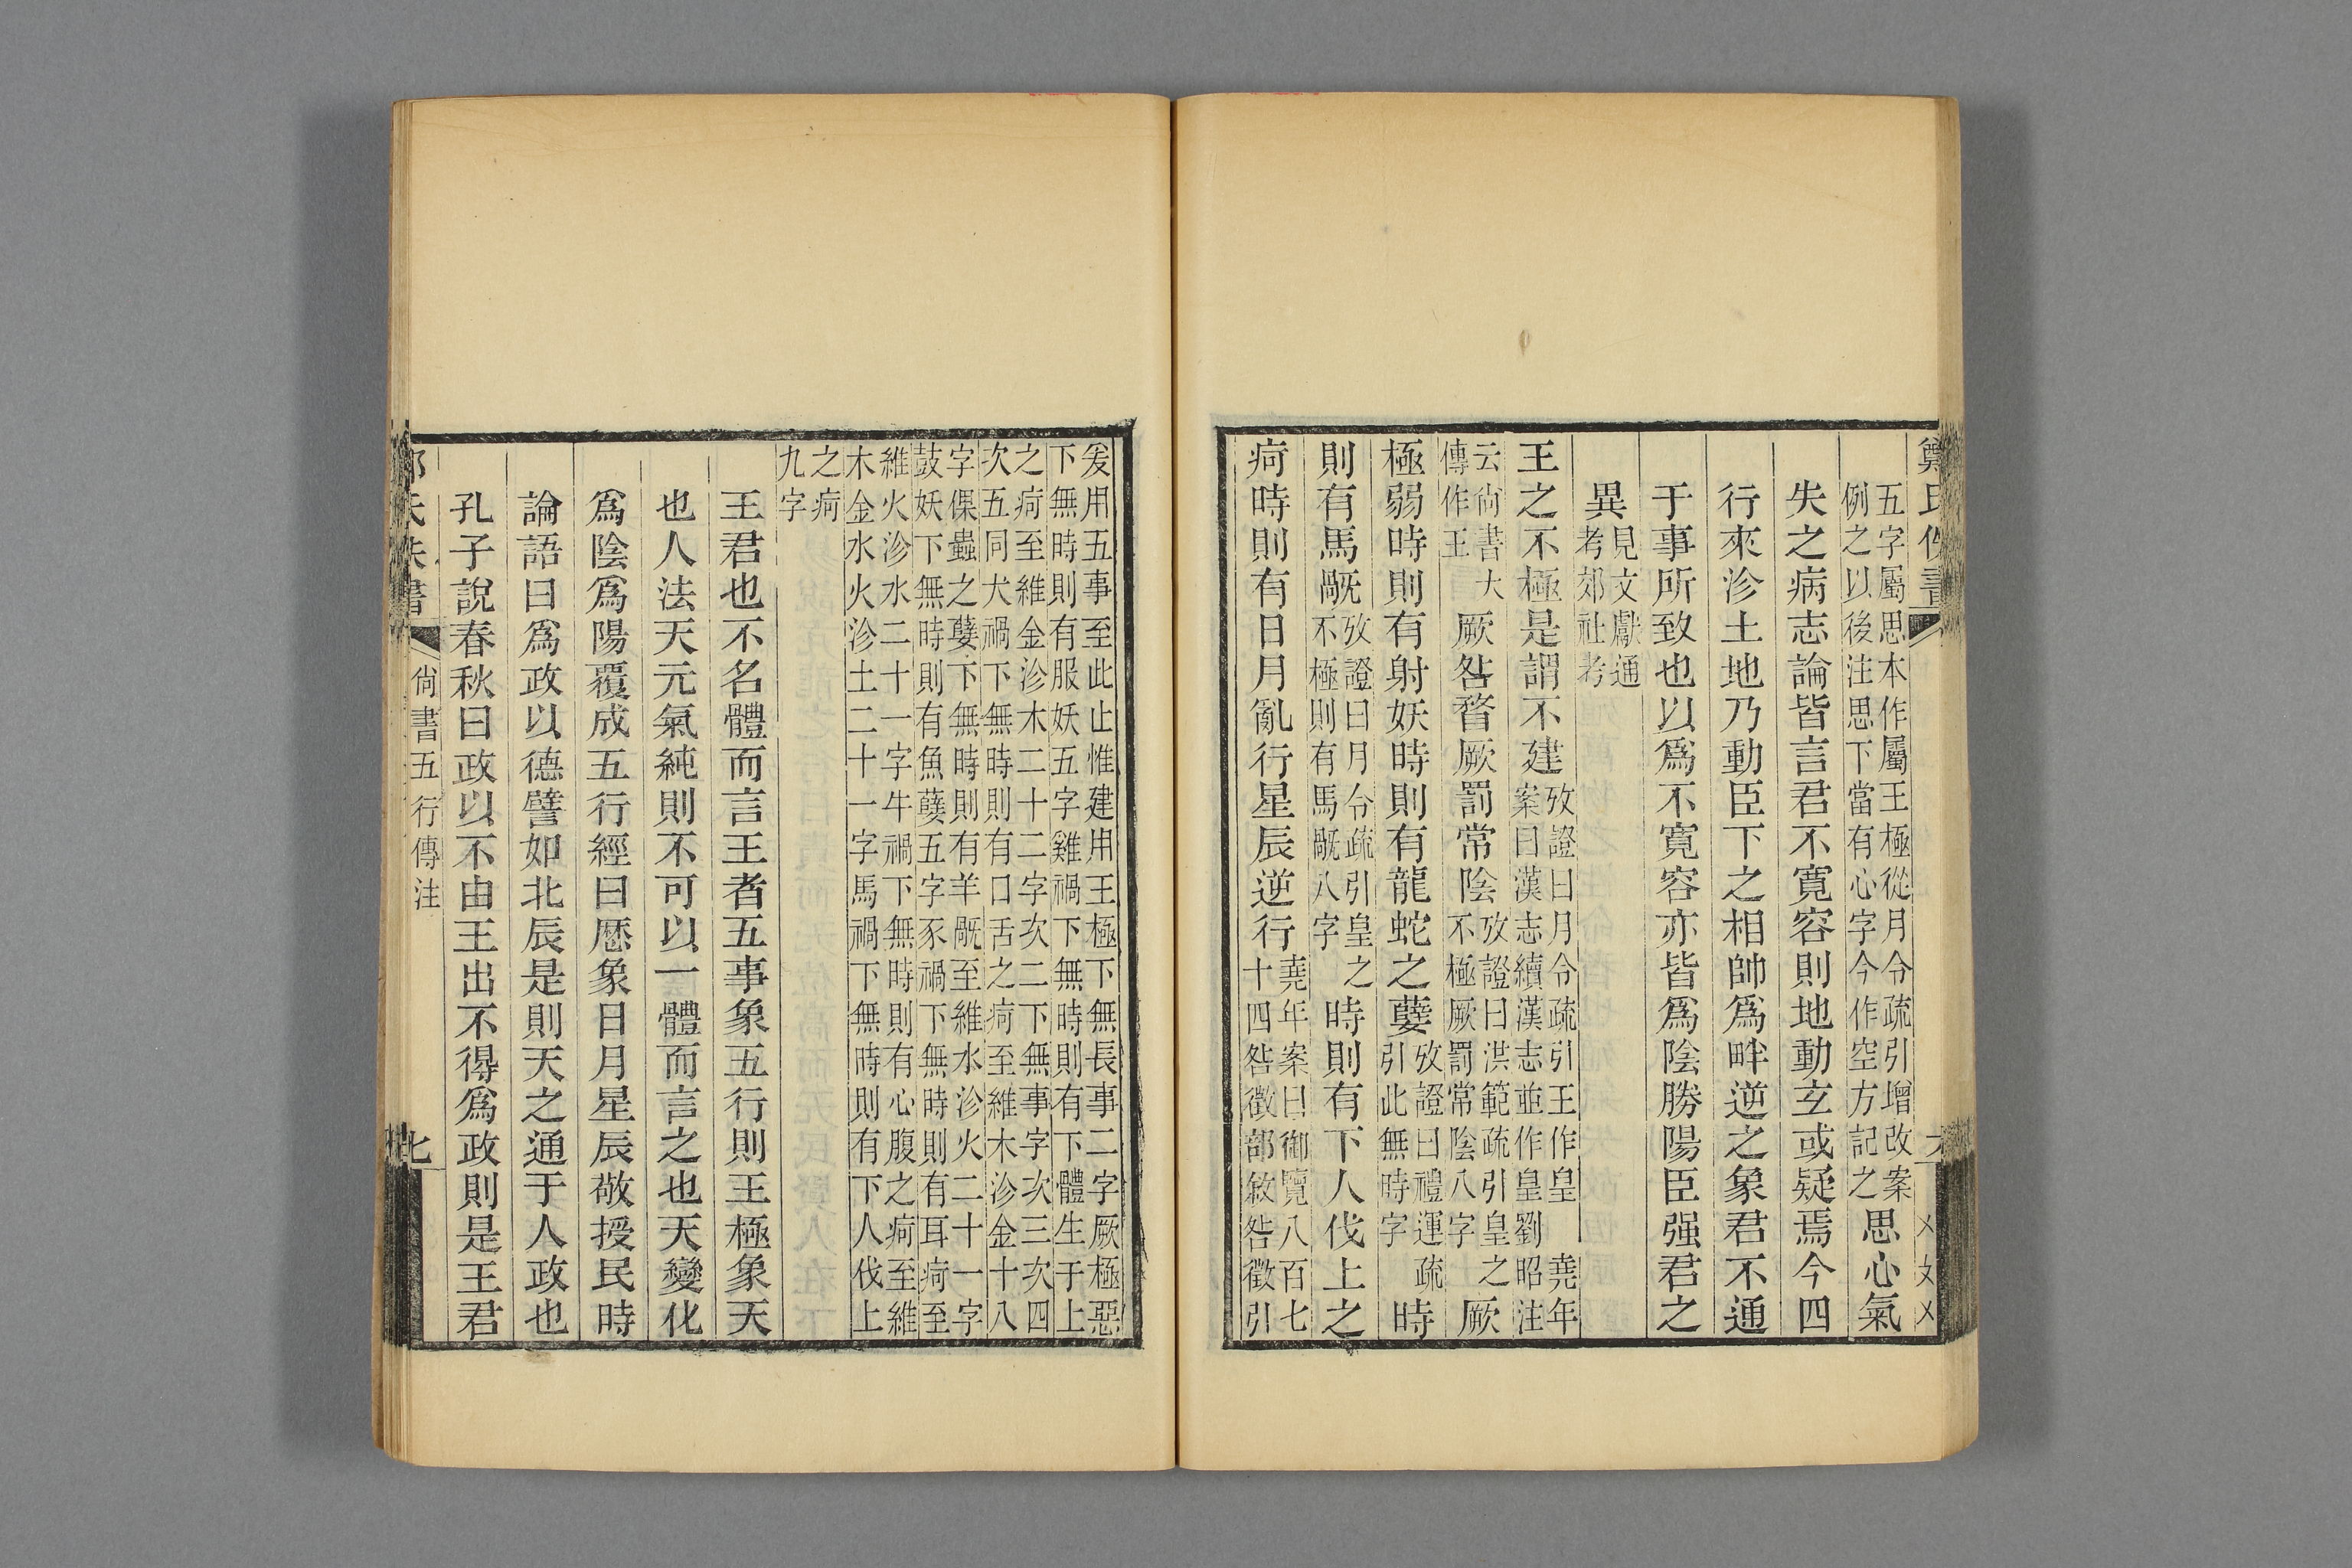 鄭氏佚書
五字屬思本作屬王極從月令疏引增改案
例之以後注思下當有心字今作空方記之
思心氣
失之病志論皆言君不寬容則地動玄或疑焉今四
行來沴土地乃動臣下之相帥爲畔逆之象君不通
于事所致也以爲不寬容亦皆爲陰勝陽臣强君之
異
見文獻通
考郊社考
王之不極是謂不建
攷證曰月令疏引王作皇 堯年
案曰漢志續漢志並作皇劉昭注
云尙書大
傳作王
厥咎瞀厥罰常陰
攷證曰洪範疏引皇之
不極厥罰常陰八字
厥
極弱時則有射妖時則有龍蛇之孽
攷證曰禮運疏
引此無時字
時
則有馬旤
攷證曰月令疏引皇之
不極則有馬旤八字
時則有下人伐上之
痾時則有日月亂行星辰逆行
堯年案曰御覽八百七
十四咎徵部敘咎徵引
爰用五事至此止惟建用王極下無長事二字厥極惡
下無時則有服妖五字雞禍下無時則有下體生于上
之痾至維金沴木二十二字次二下無事字次三次四
次五同犬禍下無時則有口舌之痾至維木沴金十八
字倮蟲之孽下無時則有羊旤至維水沴火二十一字
鼓妖下無時則有魚孽五字豕禍下無時則有耳痾至
維火沴水二十一字牛禍下無時則有心腹之痾至維
木金水火沴土二十一字馬禍下無時則有下人伐上
之痾
九字
王君也不名體而言王者五事象五行則王極象天
也人法天元氣純則不可以一體而言之也天變化
爲陰爲陽覆成五行經曰厯象日月星辰敬授民時
論語曰爲政以德譬如北辰是則天之通于人政也
孔子說春秋曰政以不由王出不得爲政則是王君
尙書五行傳注
七